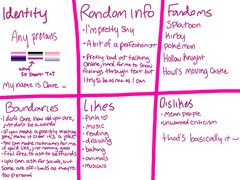 Identity
Any pronouns
my name is Claire
Random info
• I'm pretty shy
• A bit of a perfectionist
• Pretty bad at talking
online, hard for me to show
feelings through text but
I try to be nice as I can
Fandoms
Splatoon
Kirby
pokémon
Hollow Knight
Howl's Moving Castle
Boundaries
• I don't care how old you are,
just don't be weird
joke, make sure it's a joke!
• Feel free to ask to be friends
Likes
• Pink
• music
• reading
• drawing
• baking
• animals
• musicals
Dislikes
• mean people
• unwanted criticism
that's basically it